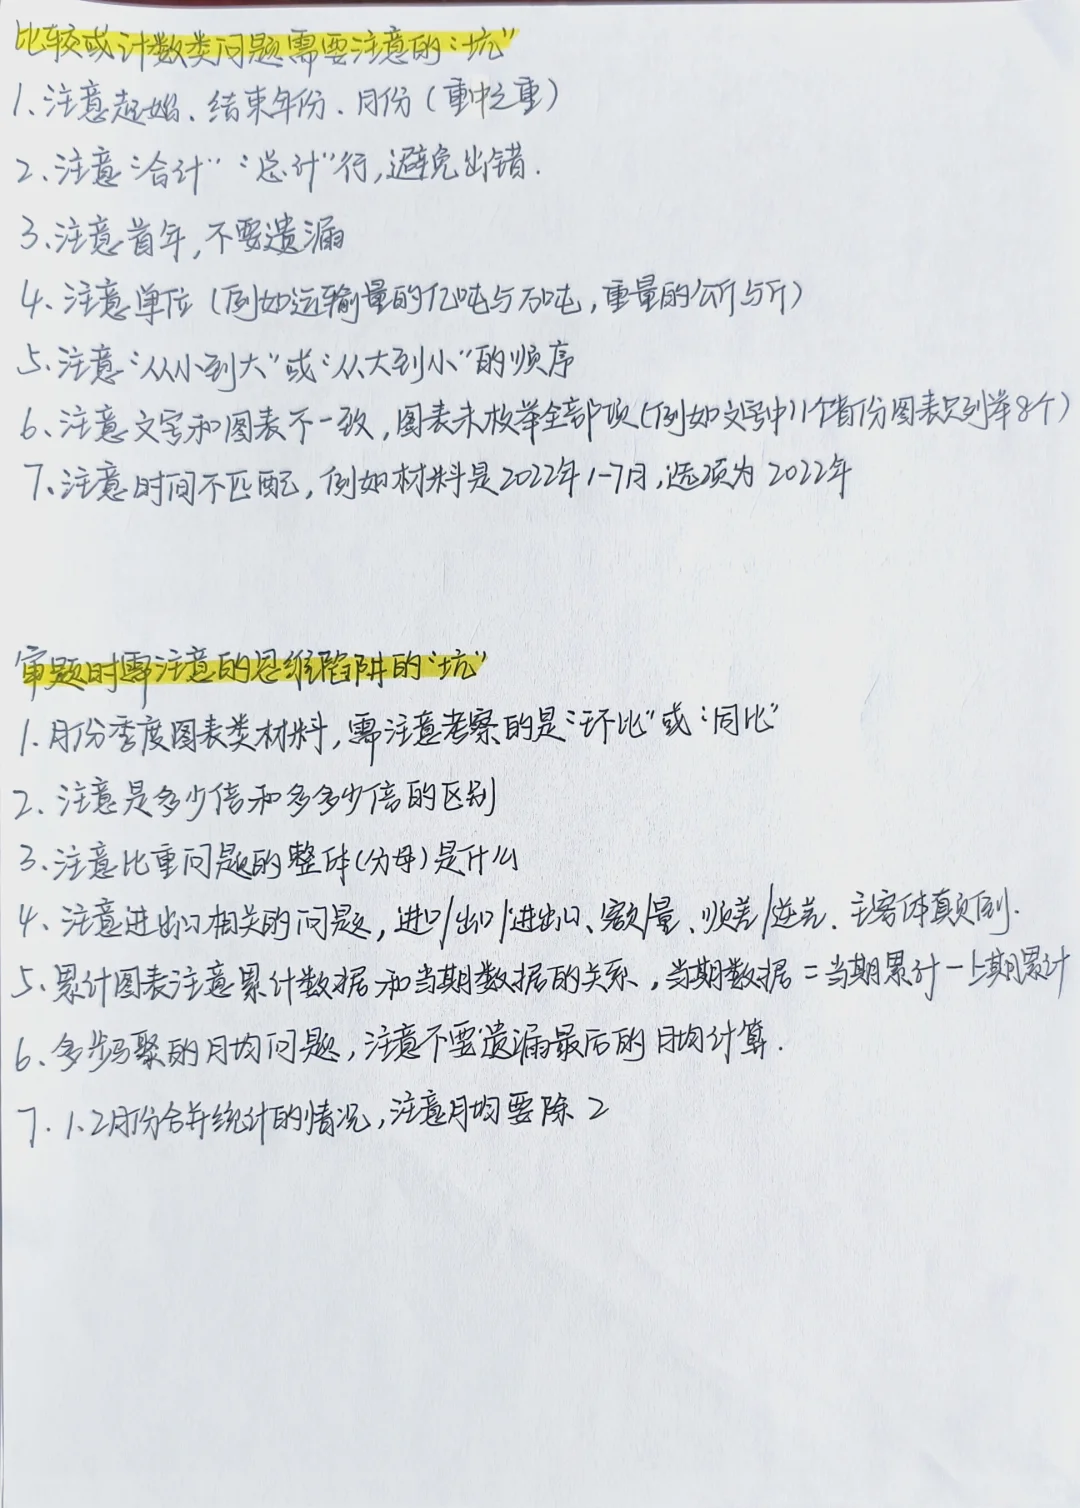 比较或计数类问题需要注意的“坑”
1、注意起始、结束年份、月份（重中之重）
2、注意“合计”“总计”行,避免出错.
3、注意首年,不要遗漏
4、注意单位（例如运输量的亿吨与万吨,重量的公斤与斤）
5、注意“从小到大”或“从大到小”的顺序
6、注意文字和图表不一致,图表未枚举全部项（例如文字中11个省份图表只列举8个）
7、注意时间不匹配,例如材料是2022年1-7月,选项为2022年
审题时需注意的思维陷阱的“坑”
1、月份季度图表类材料,需注意考察的是“环比”或“同比”
2、注意是多少倍和多多少倍的区别
3、注意比重问题的整体(分母)是什么
4、注意进出口相关的问题,进口/出口/进出口、额/量、顺差/逆差、主客体真颠倒.
5、累计图表注意累计数据和当期数据的关系,当期数据=当期累计-上期累计
6、多步骤的月均问题,注意不要遗漏最后的月均计算.
7、1、2月份合并统计的情况,注意月均要除2